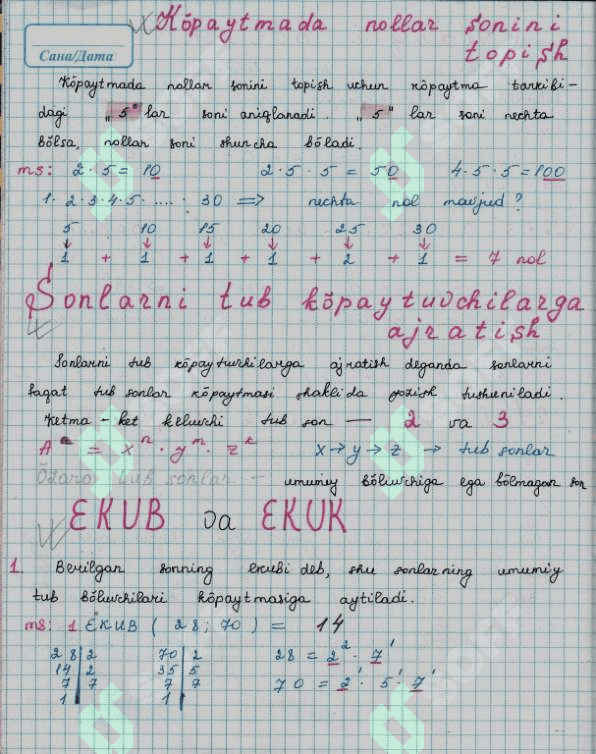 Kõpaytmada nollar sonini
topish
Сана/Дата
Kõpaytmada nollar sonini topish uchun kõpaytma tarkibi-
dagi "5" lar soni aniqlanadi. "5" lar soni nechta
bõlsa, nollar soni shuncha bõladi.
ms: 2·5=10 2·5·5=50 4·5·5=100
1·2·3·4·5·....·30 => nechta nol mavjud?
5 10 15 20 25 30
↓ ↓ ↓ ↓ ↓ ↓
1 + 1 + 1 + 1 + 2 + 1 = 7 nol
Sonlarni tub kõpaytuvchilarga
ajratish
Sonlarni tub kõpaytuvchilarga ajratish deganda sonlarni
faqat tub sonlar kõpaytmasi shaklida yozish tushuniladi.
Ketma-ket keluvchi tub son — 2 va 3
A = xⁿ · yᵐ · zᵏ x→y→z → tub sonlar
Õzaro tub sonlar — umumiy bõluvchiga ega bõlmagan son
EKUB va EKUK
1. Berilgan sonning ekubi deb, shu sonlarning umumiy
tub bõluvchilari kõpaytmasiga aytiladi.
ms: 1 EKUB (28; 70) = 14
28|2 70|2 28 = 2² · 7¹
14|2 35|5
7|7 7|7 70 = 2¹ · 5¹ · 7¹
1| 1|
SOFF